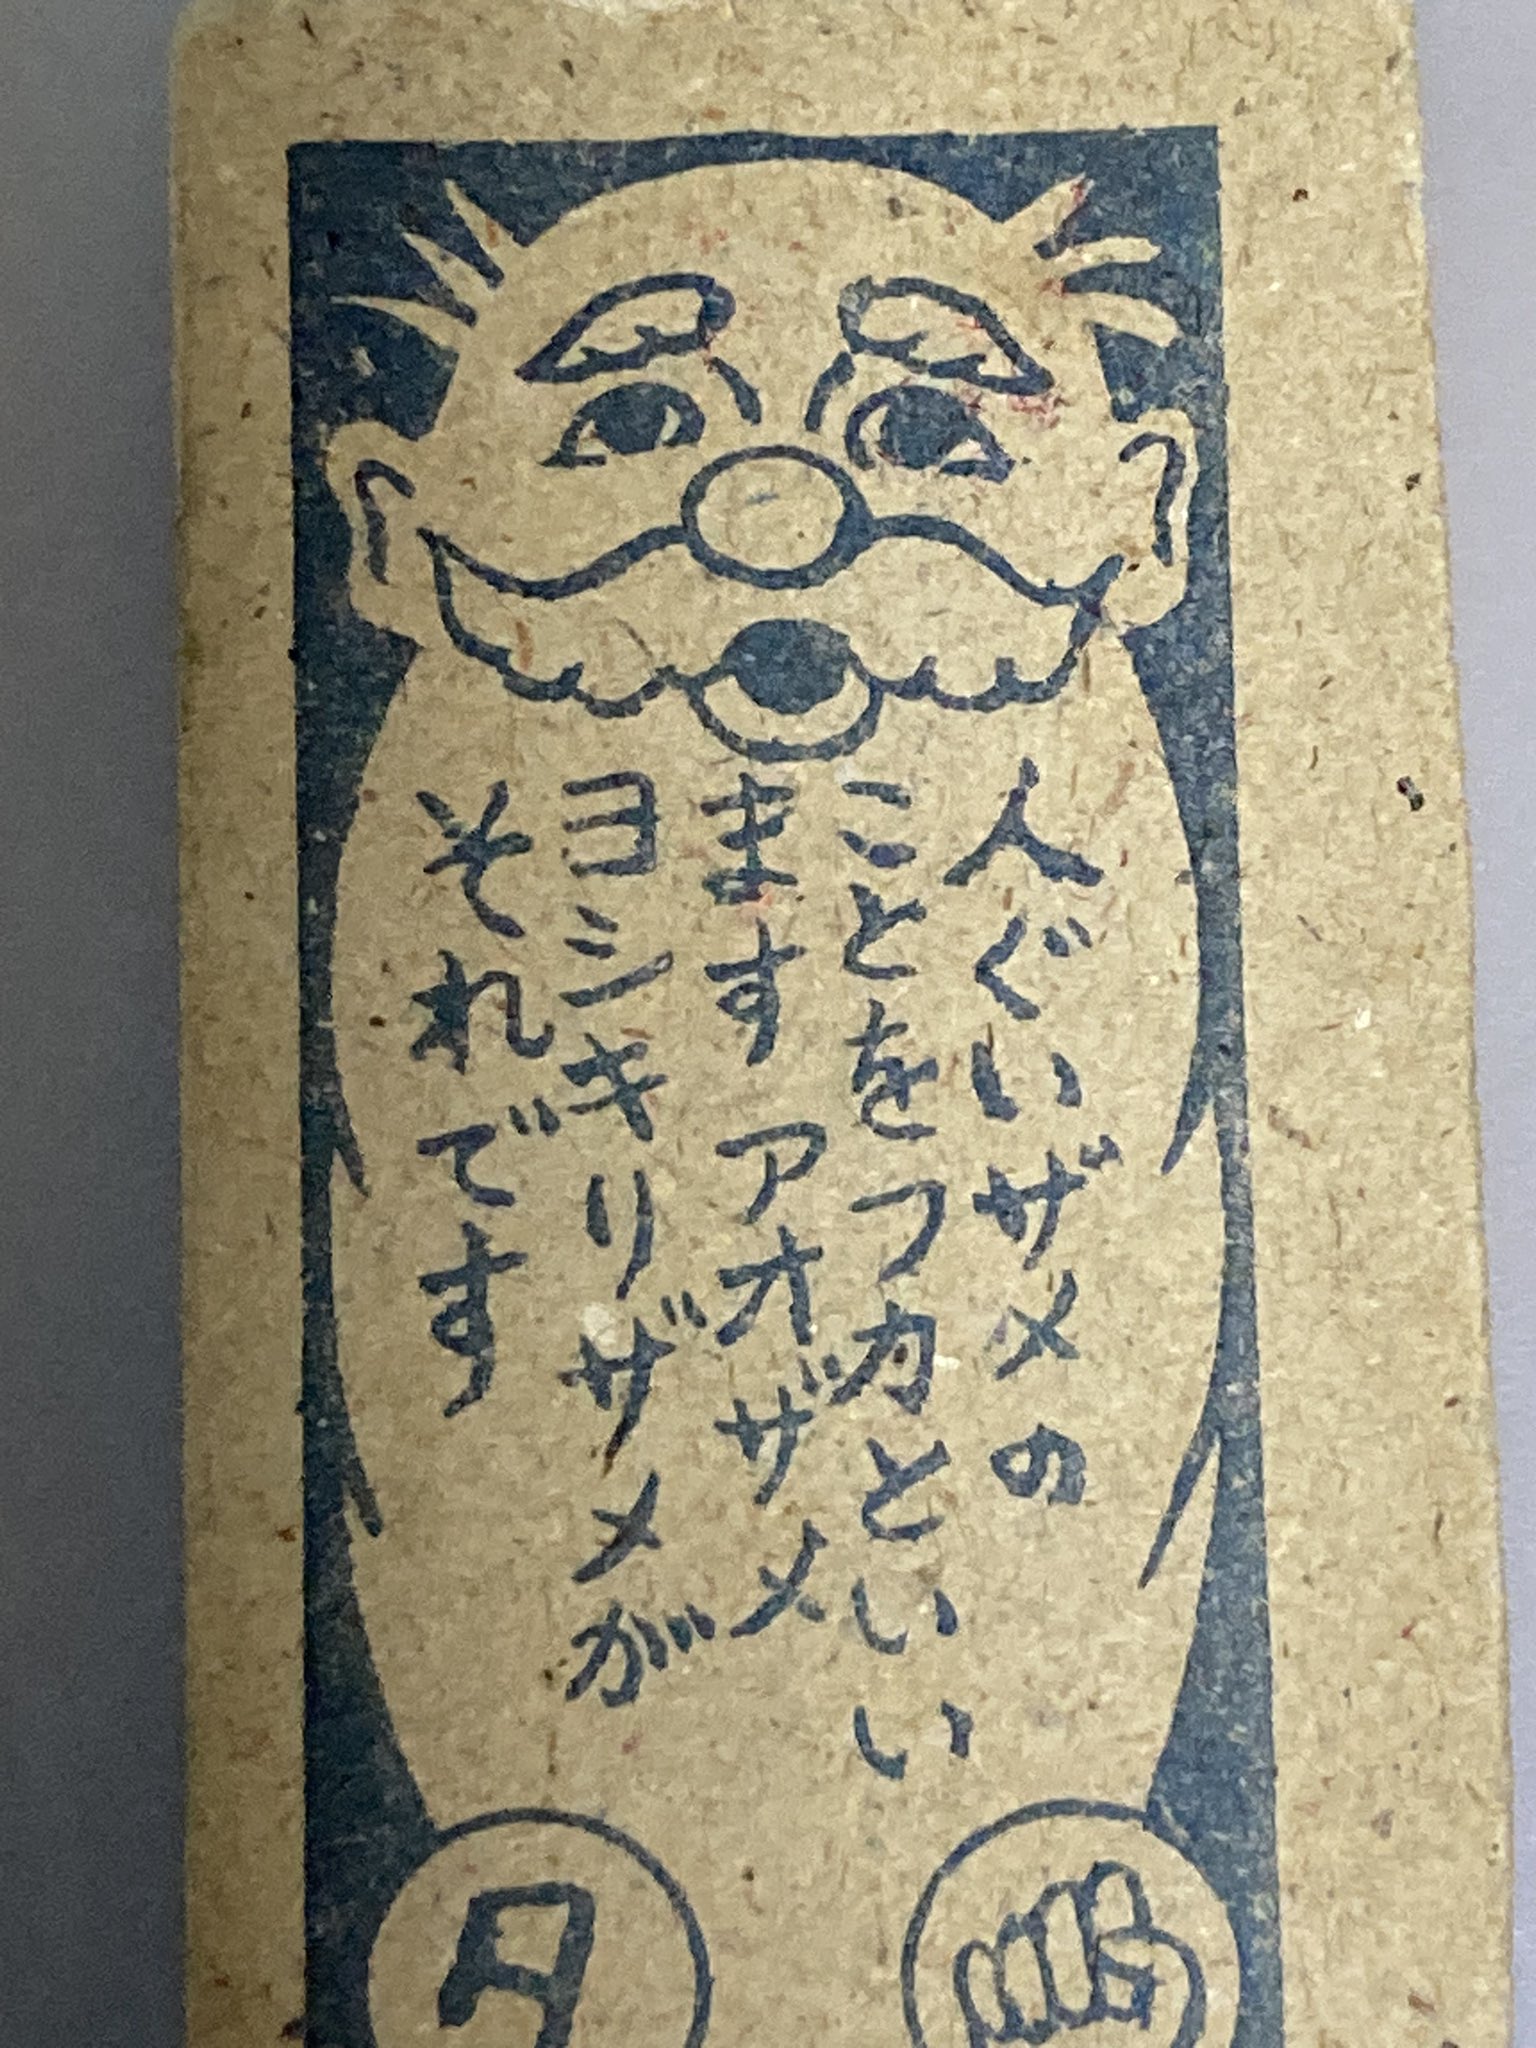 人ぐいザメの
ことをつカといい
ます アオザメ
ヨシキリザメが
それです
タ